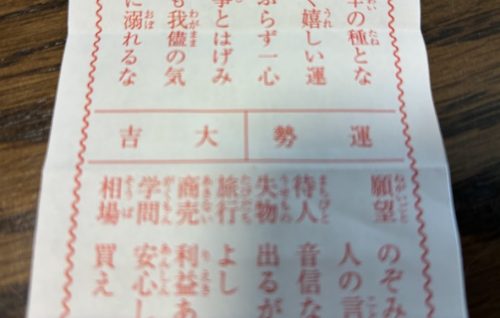 の種とな
く嬉しい運
ぶらず一心
事とはげみ
も我儘の気
に溺れるな
運勢 大吉
願望 のぞみ
人の言
待人 音信な
失物 出るが
旅行 よし
商売 利益あ
学問 安心し
相場 買え